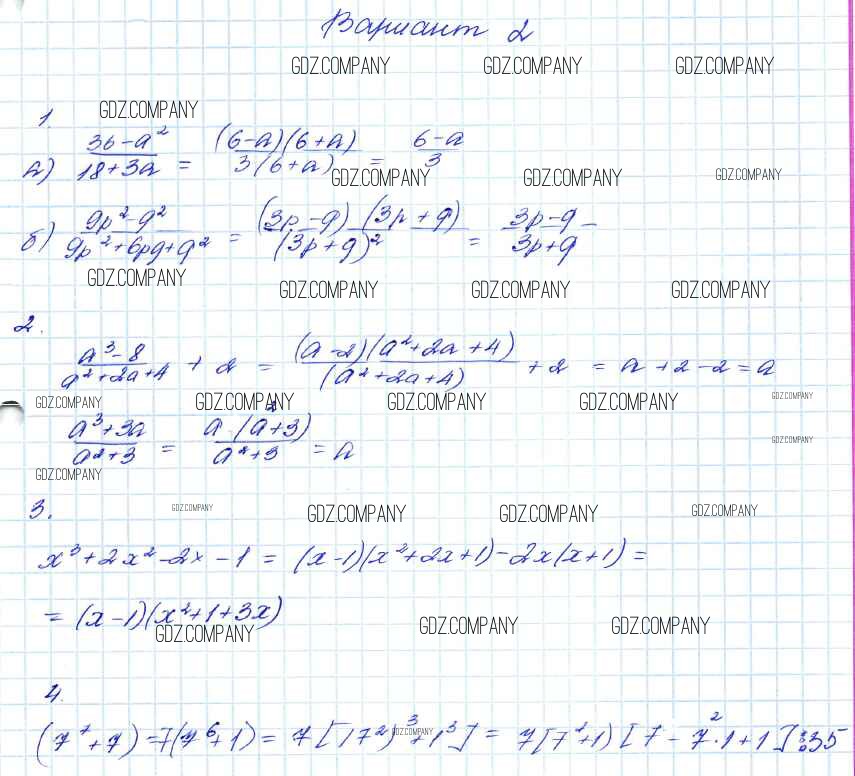 Вариант 2
GDZ.COMPANY GDZ.COMPANY GDZ.COMPANY
1. GDZ.COMPANY
а) (36-a²)/(18+3a) = ((6-a)(6+a))/(3(6+a)) = (6-a)/3
GDZ.COMPANY GDZ.COMPANY GDZ.COMPANY
б) (9p²-q²)/(9p²+6pq+q²) = ((3p-q)(3p+q))/((3p+q)²) = (3p-q)/(3p+q)
GDZ.COMPANY GDZ.COMPANY GDZ.COMPANY GDZ.COMPANY
2.
(a³-8)/(a²+2a+4) + 2 = ((a-2)(a²+2a+4))/((a²+2a+4)) + 2 = a+2-2 = a
GDZ.COMPANY GDZ.COMPANY GDZ.COMPANY GDZ.COMPANY GDZ.COMPANY
(a³+3a)/(a²+3) = (a·(a²+3))/(a²+3) = a
GDZ.COMPANY
GDZ.COMPANY
3. GDZ.COMPANY GDZ.COMPANY GDZ.COMPANY GDZ.COMPANY
x³+2x²-2x-1 = (x-1)(x²+2x+1)-2x(x+1) =
= (x-1)(x²+1+3x)
GDZ.COMPANY GDZ.COMPANY GDZ.COMPANY
4.
(7⁷+7) = 7(7⁶+1) = 7[(7²)³+1³] = 7[7²+1)[7-7²·1+1]⋮35
GDZ.COMPANY